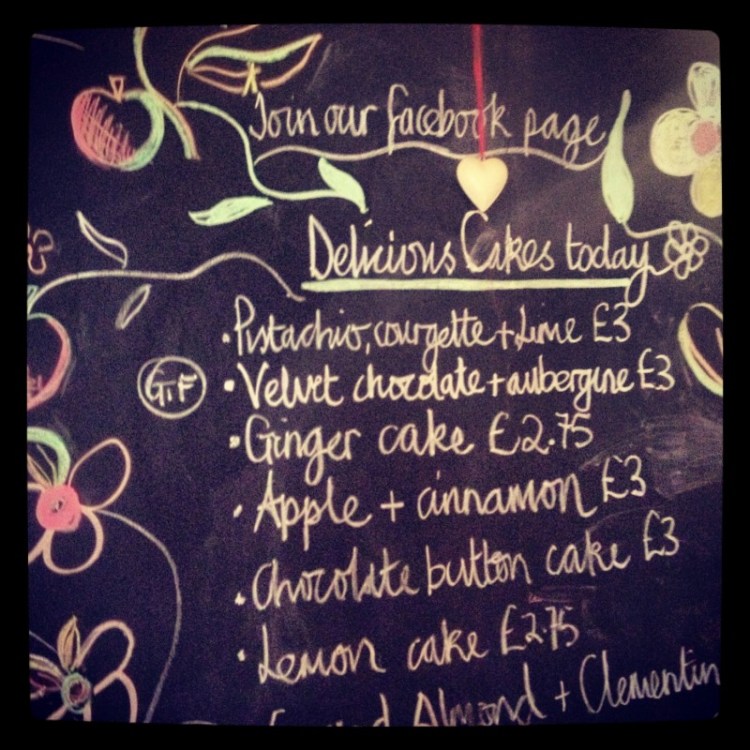 Join our facebook page
Delicious Cakes today
• Pistachio, courgette + Lime £3
G.F • Velvet chocolate + aubergine £3
• Ginger cake £2.75
• Apple + cinnamon £3
• Chocolate button cake £3
• Lemon cake £2.75
Almond + Clementin